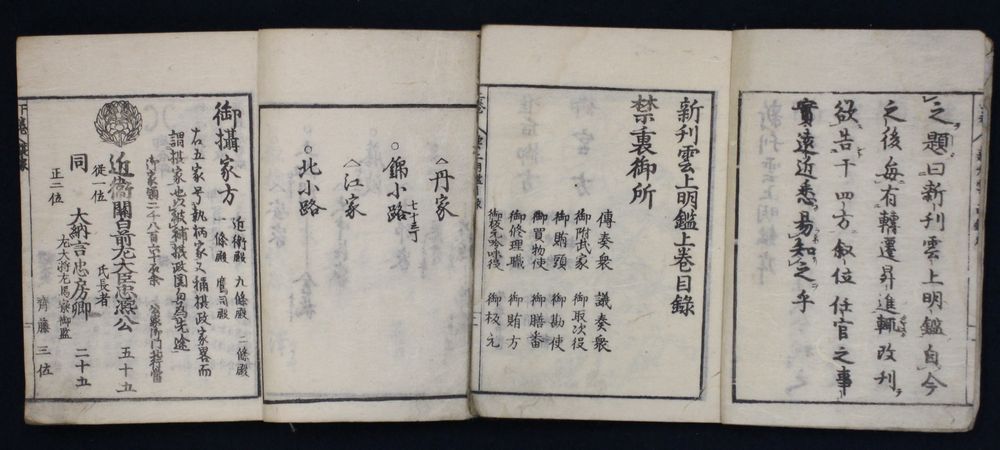 之題曰新刊雲上明鑑自今
之後毎有轉遷昇進輙改刊
欲告于四方叙位任官之事
實遠近悉易知之乎
新刊雲上明鑑上巻目録
禁裏御所
傳奏衆 議奏衆
御附武家 御取次役
御賄頭 御勘使
御買物使 御膳番
御修理職 御賄方
御板元吟味役 御板元
丹家
七十三丁
○錦小路
江家
○北小路
御攝家方
近衛殿 九條殿 二條殿
一條殿 鷹司殿
右五家号執柄家又稱摂政家畧而
謂摂家也以被補摂政関白為先途
近衛關白前左大臣忠凞公 五十五
従一位 氏長者
同 大納言忠房卿 二十五
正二位 左大将左馬寮御監
齊藤三位